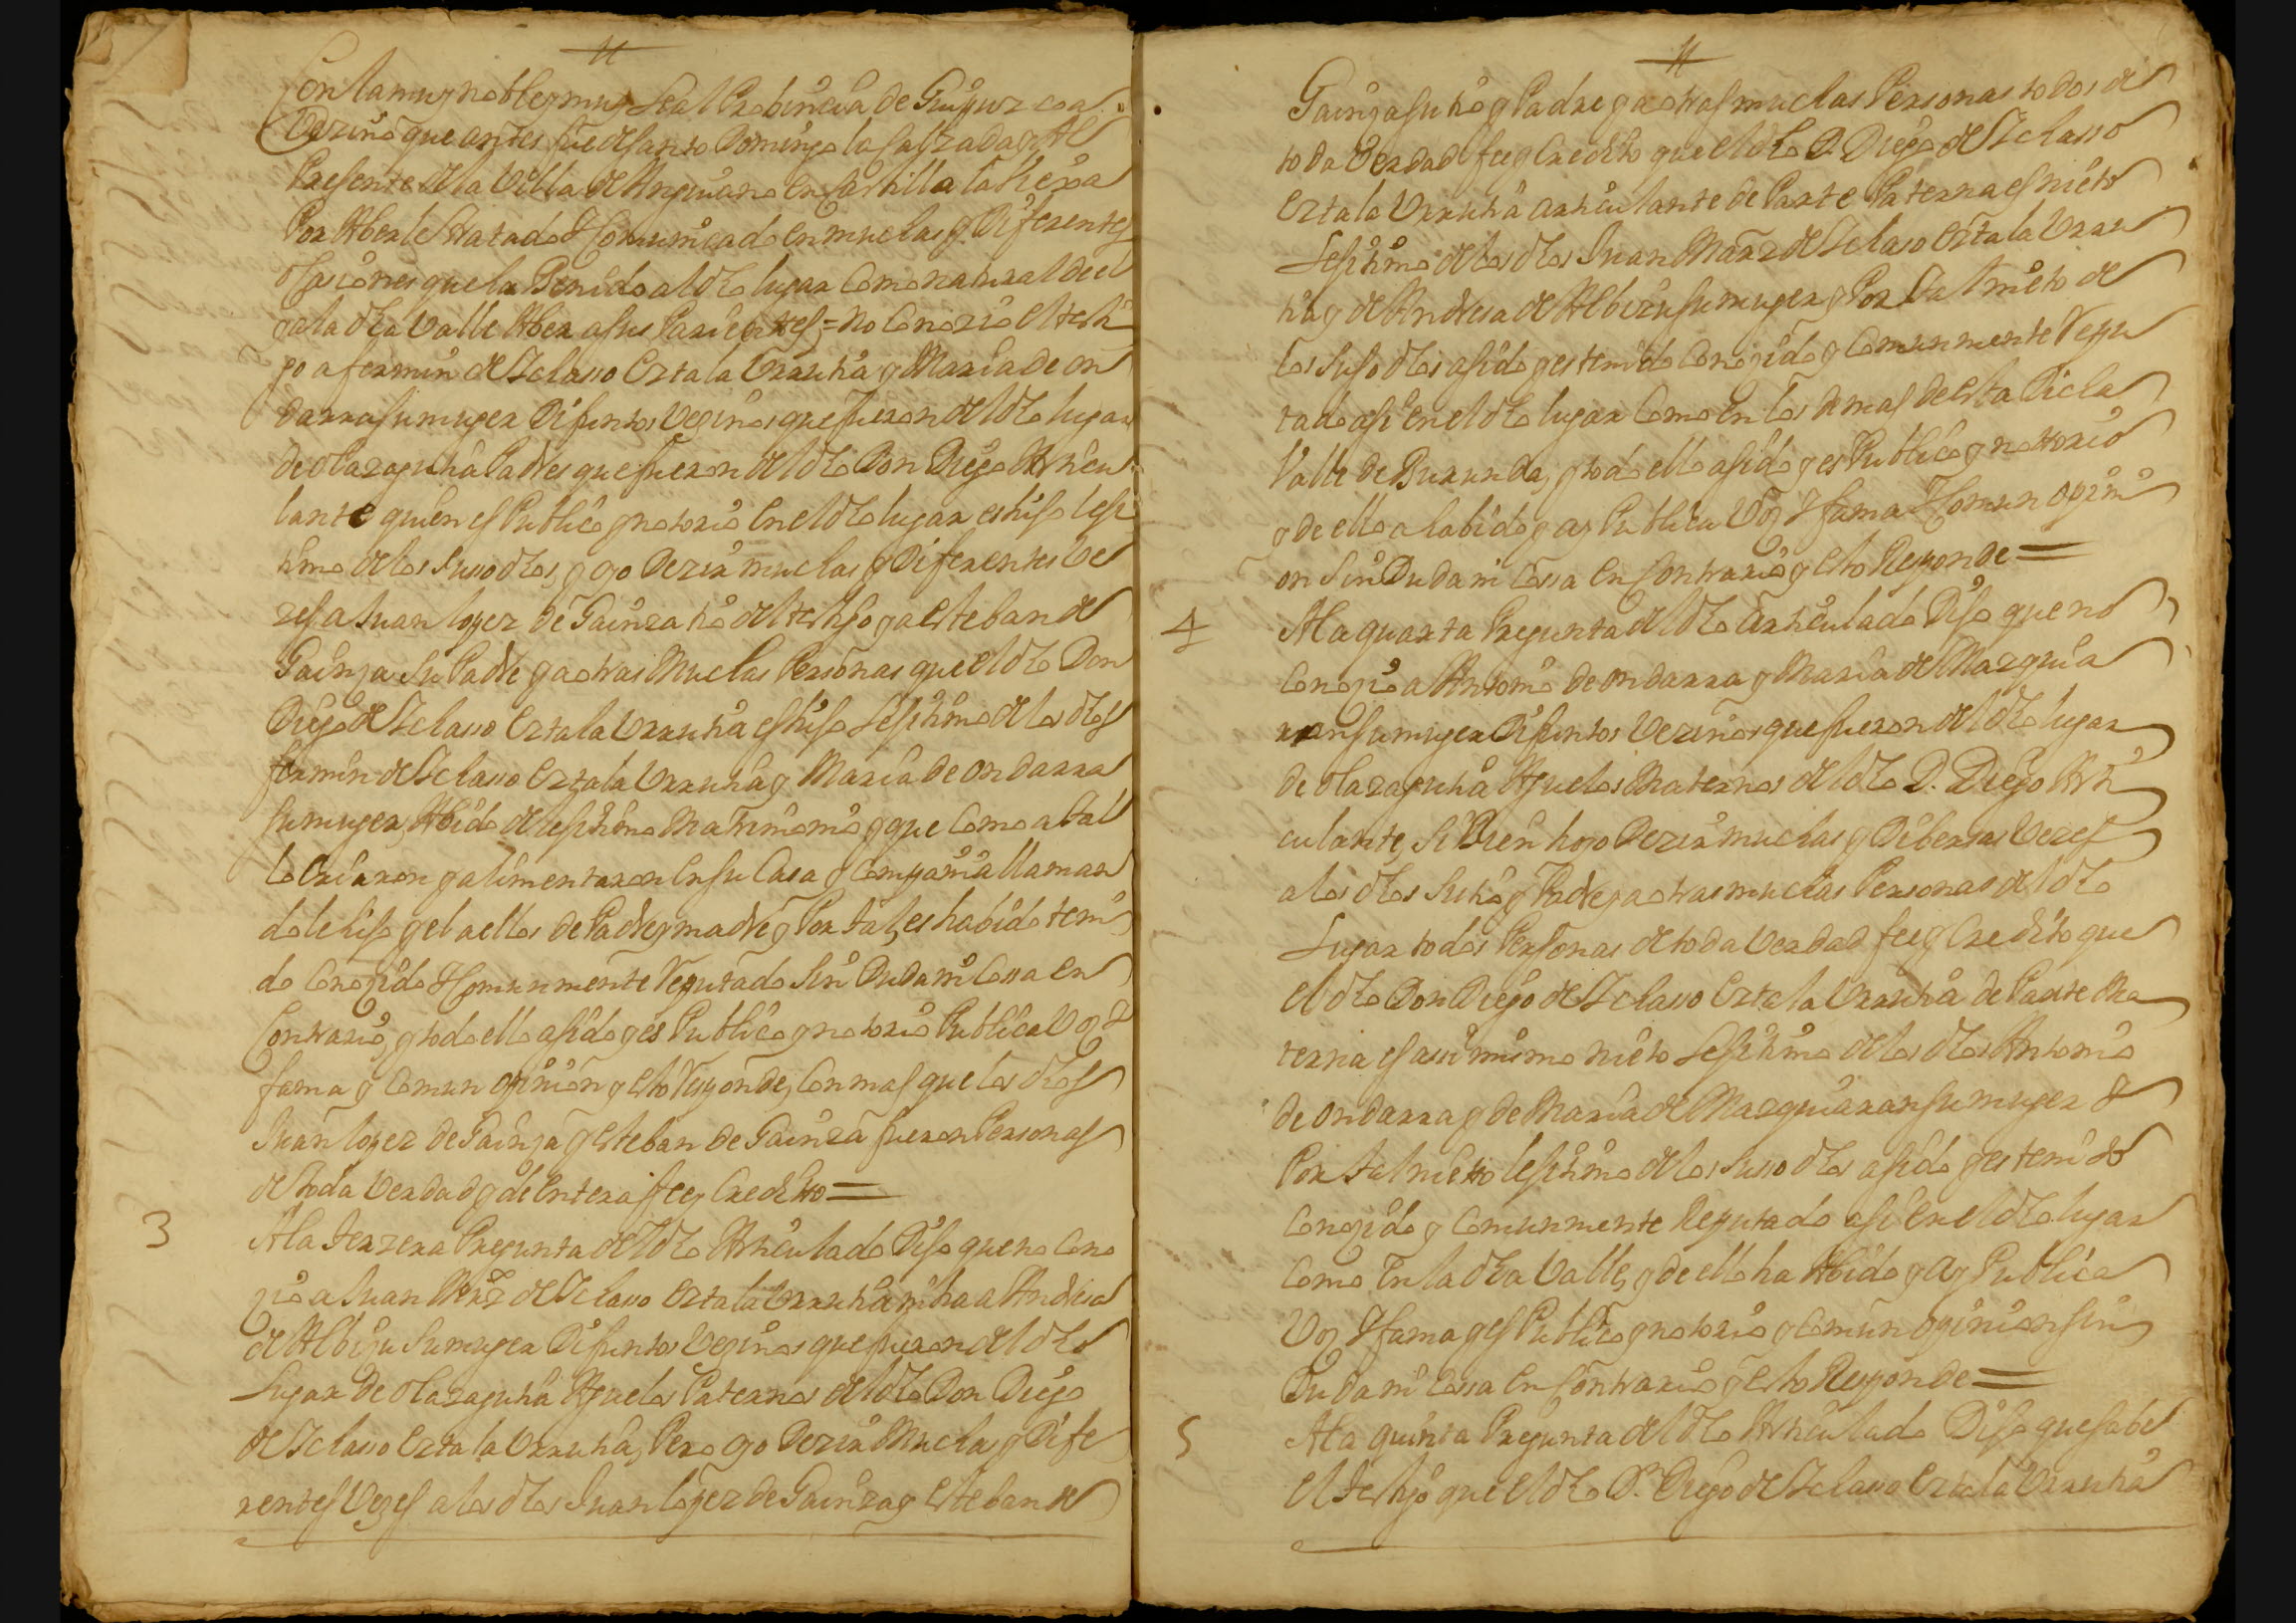 Con la muy noble y muy Leal Probincia de Guipuzcoa
Vezino que antes fue de Santo Domingo la Calzada y al
Presente de la Villa de Anguiano en Castilla la Viexa
Por Aberle tratado Y Comunicado en muchas y Diferentes
ocasiones que ha Benido al dho lugar Como natural de el
y a la dha Valle Aber a sus Parientes = no Conozio el testi
go a fermin de Yclasso Eztala Urrutia y Maria de on
darra su muger Difuntos Vezinos que fueron del dho lugar
de olazagutia Padres que fueron del dho Don Diego Articu
lante quien es Publico y notorio En el dho lugar es hijo lexi
timo de los Susso dhos, y oyo Dezir muchas y Diferentes Ve
zes a Juan lopez de Gainza tio del testigo y a Esteban de
Gainza Su Padre y a otras Muchas Personas que el dho Don
Diego de Yclasso Eztala Urrutia es hijo Lexitimo de los dhos
fermin de Yclasso Eztala Urrutia y Maria de ondarra
su muger, Abido de lexitimo Matrimonio y que Como a tal
lo Criaron y alimentaron En su Casa y Compania llaman
dole hijo y el a ellos de Padre y madre y Por tal, es habido teni
do Conozido Y Comunmente Reputado Sin Duda ni Cossa en
Contrario, y todo ello a sido y es Publico y notorio Publica Voz Y
fama y Comun opinion y esto Responde, Con mas que los dhos
Juan lopez de Gainza y esteban de Gainza fueron Personas
de toda Verdad y de Entera fee y Credito =
3 A la terzera Pregunta del dho Articulado Dijo que no Cono
zio a Juan Mrz de Yclasso Eztala Urrutia ni ha a Andresa
de Albizu Su muger Difuntos Vezinos que fueron del dho
Lugar de olazagutia Aguelos Paternos del dho Don Diego
de Yclasso Eztala Urrutia, Pero oyo Dezir Muchas y Dife
rentes Vezes a los dhos Juan lopez de Gainza y Esteban de
Gainza su tio y Padre y a otras muchas Personas todos de
toda Verdad fee y Credito que el dho D. Diego de Yclasso
Eztala Urrutia articulante de Parte Paterna es nieto
Lexitimo de los dhos Juan Marz de Yclasso Eztala Urru
tia y de Andresa de Albizu su muger y Por tal nieto de
los suso dhos a sido y es tenido Conozido y Comunmente Repu
tado assi en el dho lugar Como en los demas de esta Dicha
Valle de Burunda, y todo ello a sido y es Publico y nottorio
y de ello a habido y ay Publica Voz Y fama Y Comun opini
on sin Duda ni Cossa en Contrario y esto Responde =
4 A la quarta Pregunta del dho Articulado Dijo que no
Conozio a Antonio de ondarra y Maria de Mazquia
ran su muger Difuntos Vezinos que fueron del dho lugar
de olazagutia Aguelos Maternos del dho D. Diego Arti
culante, Si Bien hoyo Dezir muchas y Dibersas Vezes
a los dhos Su tio y Padre y a otras muchas Personas del dho
Lugar todos Personas de toda Verdad fee y Credito que
el dho Don Diego de Yclasso Eztala Urrutia de Parte Ma
terna es assi mismo nieto Lexitimo de los dhos Antonio
de ondarra y de Maria de Mazquiaran su muger Y
Por tal nietto lexitimo de los susso dhos a sido y es tenido
Conozido y Comunmente Reputado assi en el dho lugar
Como En la dha Valle, y de ello ha Abido y ay Publica
Voz Y fama y es Publico y notorio y Comun opinion sin
Duda ni Cossa en Contrario y esto Responde =
5 A la quinta Pregunta del dho Articulado Dijo que sabe
el testigo que el dho D. Diego de Yclasso Eztala Urrutia